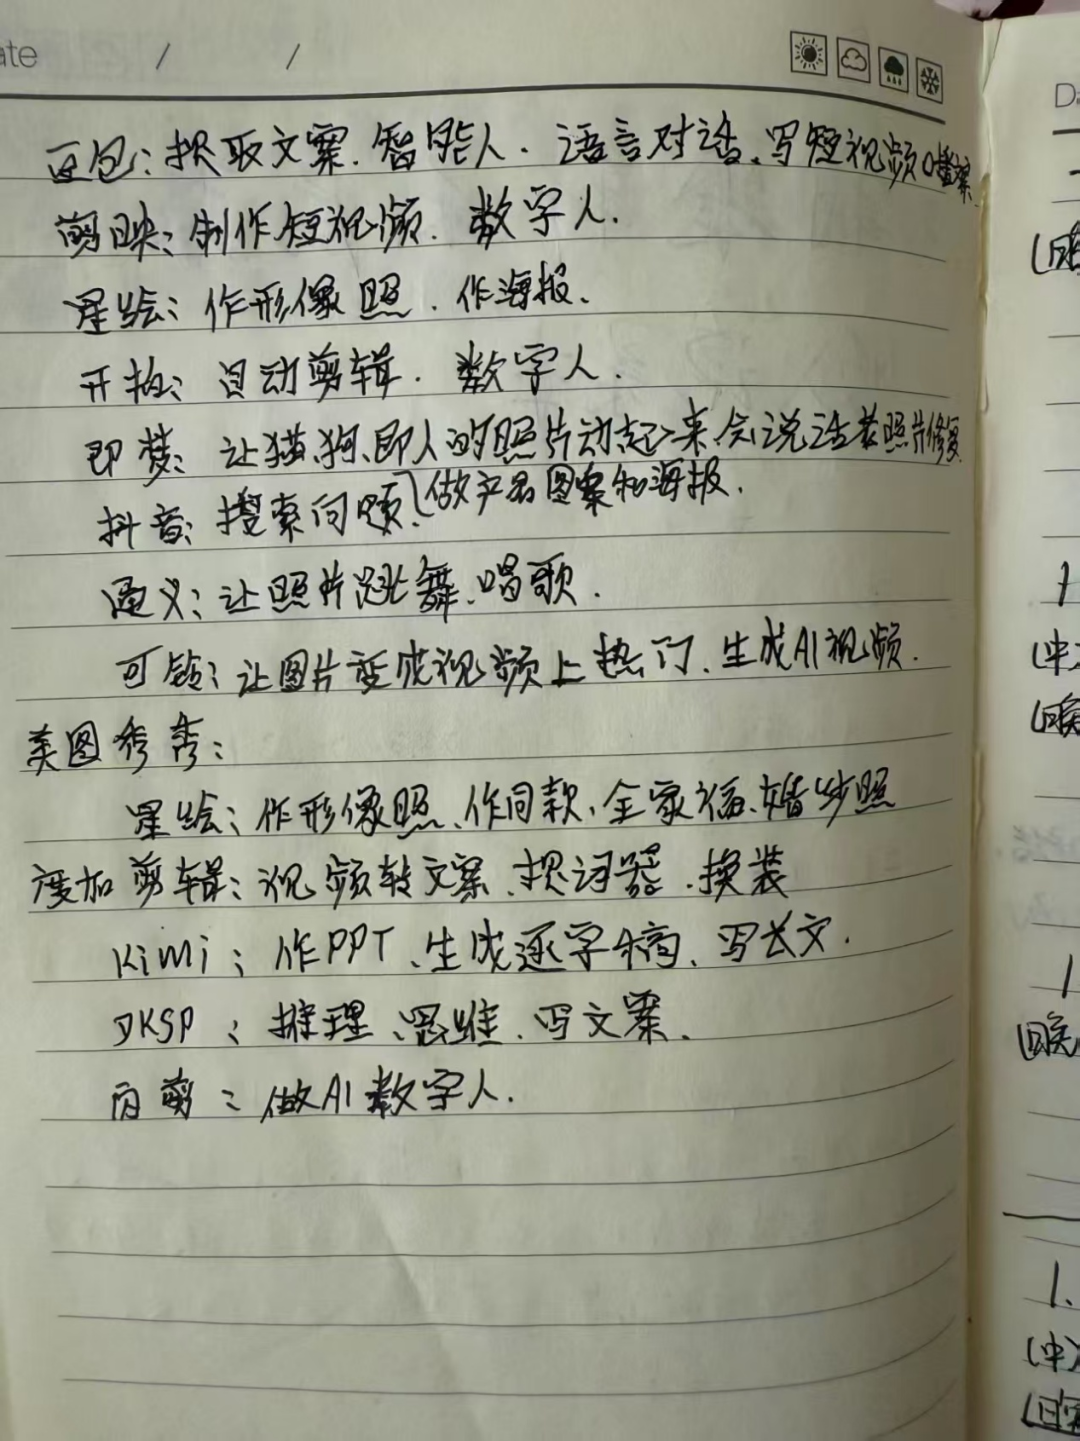 ate / /
豆包：提取文案.智能人.语言对话、写短视频口播案.
剪映：制作短视频.数字人.
星绘：作形像照.作海报.
开拍：自动剪辑.数字人.
即梦：让猫、狗、即人的照片动起来、会说话老照片修复.
做产品图案和海报.
抖音：搜索问题.
通义：让照片跳舞、唱歌.
可铃：让图片变成视频上热门、生成AI视频.
美图秀秀：
星绘：作形像照、作同款、全家福、婚纱照
度加剪辑：视频转文案、提词器、换装
KiMi：作PPT、生成逐字稿、写长文.
DKSP：推理、思维、写文案.
闪剪：做AI数字人.
1
1
1.